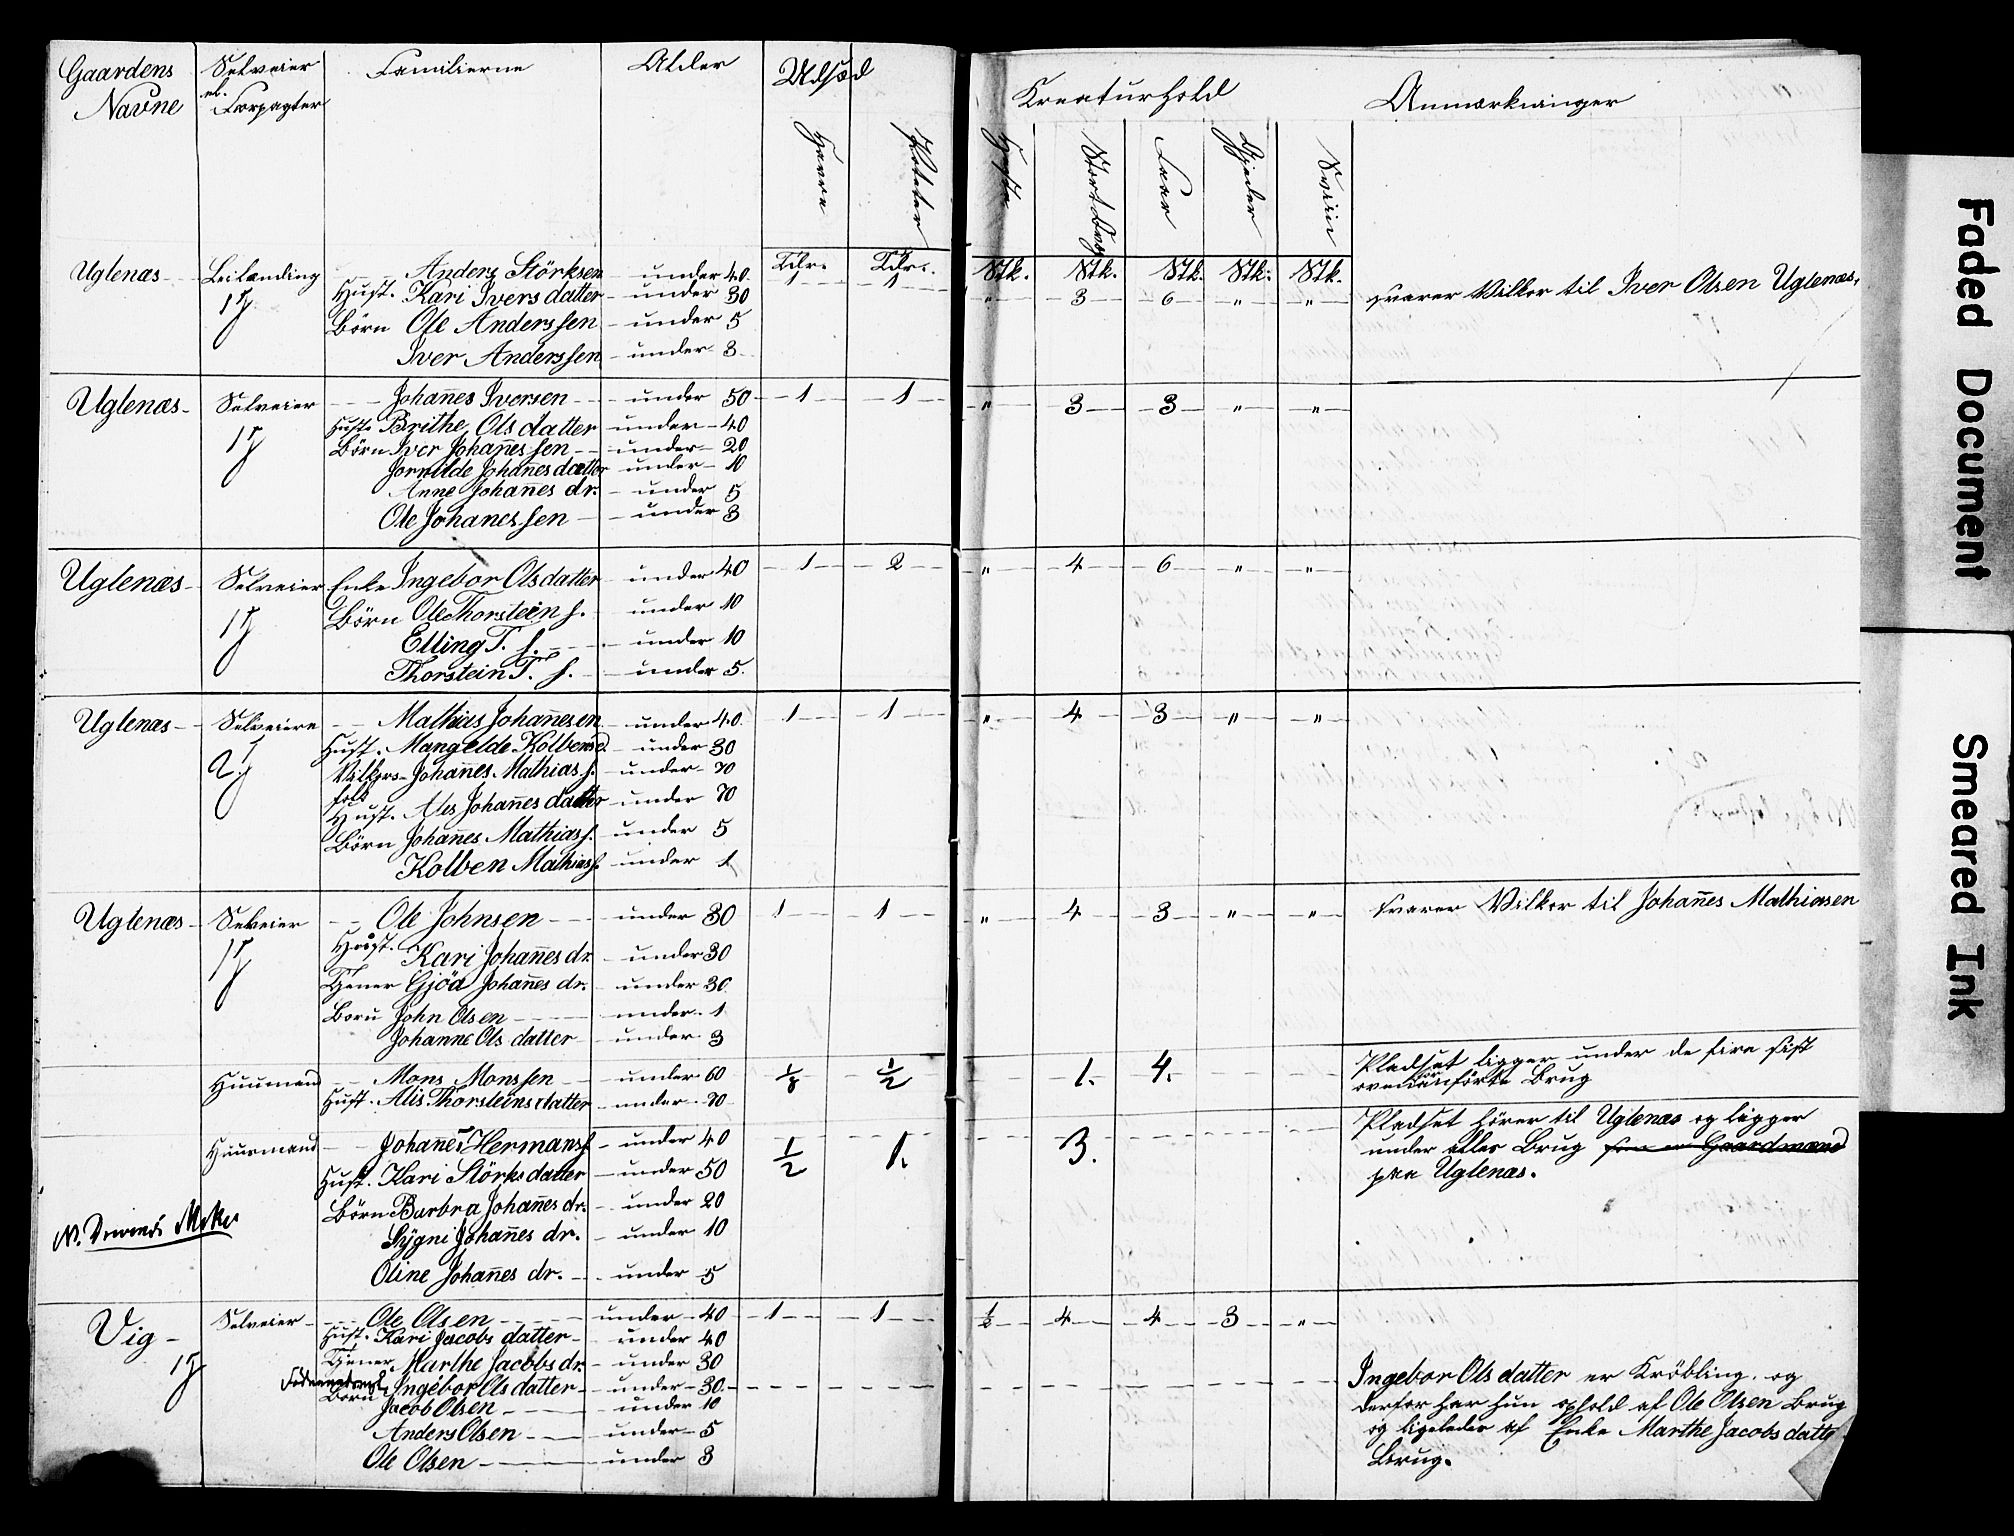 Gaardens Navne | Selveier el. Forpagter | Familierne | Alder | Udsæd | Kreaturhold | Anmærkninger
Havre | Poteter | Heste | Stort Qvæg | Faar | Gjeder | Sviin
Tdr. | Tdr. | Stk. | Stk. | Stk. | Stk. | Stk.
Uglenæs | Leilænding | Anders Störksen | under 40 | 1 | 1 | " | 3 | 6 | " | " | svarer Vilkor til Iver Olsen Uglenæs.
Hust. Kari Ivers datter | under 30
Börn Ole Anderssen | under 5
Iver Anderssen | under 3
Uglenæs | Selveier | Johañes Iversen | under 50 | 1 | 1 | " | 3 | 3 | " | "
Hust. Brithe Ols datter | under 40
Börn Iver Johañes sen | under 20
Jornilde Johañes datter | under 10
Anne Johañes dr. | under 5
Ole Johanes sen | under 3
Uglenæs | Selveier | Enke Ingebor Olsdatter | under 40 | 1 | 2 | " | 4 | 6 | " | "
Börn Ole Thorstein s. | under 10
Elling T. s. | under 10
Thorstein T. s. | under 5
Uglenæs | Selveiere | Mathias Johañesen | under 40 | 1 | 1 | " | 4 | 3 | " | "
2
Hust. Mangelde Kolbensd. | under 30
Vilkors folk Johañes Mathias s. | under 70
Hust. Ales Johañes datter | under 70
Börn Johañes Mathias s. | under 5
Kolben Mathias s. | under 1
Uglenæs | Selveier | Ole Johnsen | under 30 | 1 | 1 | " | 4 | 3 | " | " | svarer Vilkor til Johañes Mathiasen
Hust. Kari Johañes dr. | under 30
Tjener Gjöa Johañes dr. | under 30
Born John Olsen | under 1
Johanne Ols datter | under 3
Huusmand | Mons Monssen | under 60 | 1/8 | 1/2 | 1. | 4. | Pladset ligger under de fire sist
ovenanförte Brug
Hust. Alis Thorsteins datter | under 70
Huusmand | Johanes Hermans s. | under 40 | 1/2 | 1. | 3. | Pladset hörer til Uglenæs og ligger
under alles Brug Gaardmænd
paa Uglenæs.
Hust. Kari Störks datter | under 50
Börn Barbra Johañes dr. | under 20
Sÿgni Johañes dr. | under 10
Oline Johañes dr. | under 5
Vig | Selveier | Ole Olsen | under 40 | 1 | 1 | 1/2 | 4 | 4 | 3 | "
Hust. Kari Jacobs datter | under 40
Tjener Marthe Jacobs dr. | under 30
Ingebor Ols datter | under 30 | Ingebor Ols datter er Kröbling, og
derfor har hun ophold af Ole Olsen Brug
og ligeledes af Enke Marthe Jacobs datte
Brug.
Born Jacob Olsen | under 10
Anders Olsen | under 5
Ole Olsen | under 3
Faded Document
Smeared Ink